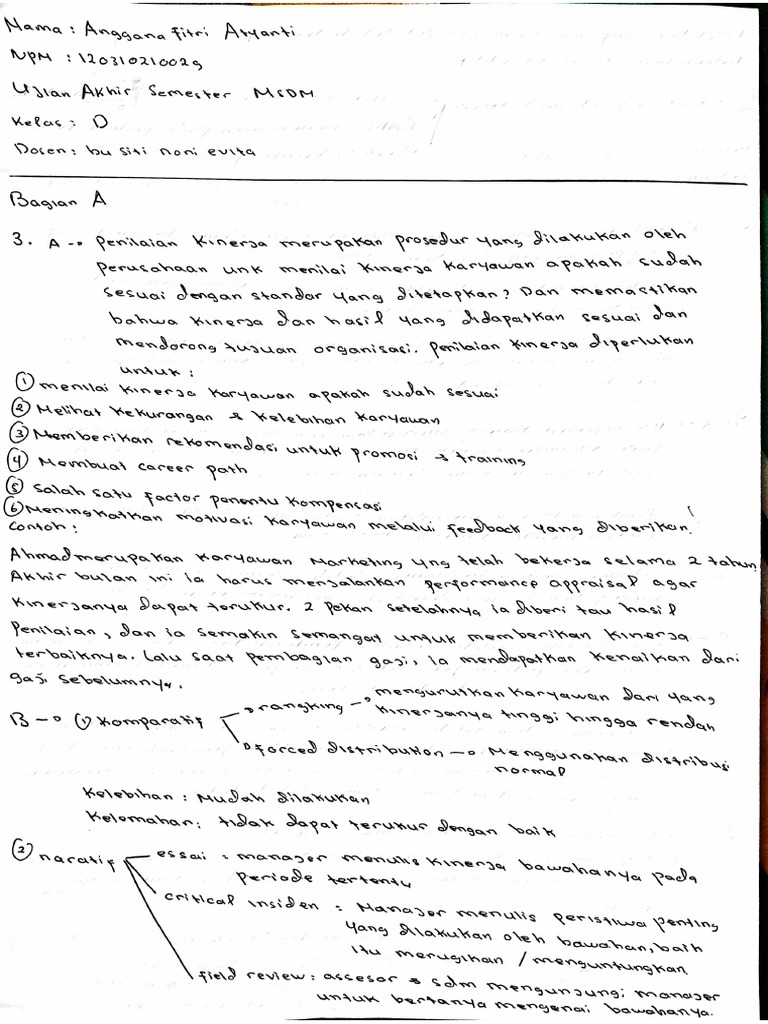 Nama : Anggana Fitri Atyanti
NPM : 120310210029
Ujian Akhir Semester MSDM
Kelas : D
Dosen : bu siti noni evita
Bagian A
3. A → Penilaian kinerja merupakan prosedur yang dilakukan oleh
perusahaan unk menilai kinerja karyawan apakah sudah
sesuai dengan standar yang ditetapkan? Dan memastikan
bahwa kinerja dan hasil yang didapatkan sesuai dan
mendorong tujuan organisasi. Penilaian kinerja diperlukan
untuk :
① menilai kinerja karyawan apakah sudah sesuai
② Melihat kekurangan & kelebihan karyawan
③ Memberikan rekomendasi untuk promosi → training
④ Membuat career path
⑤ Salah satu factor penentu kompensasi
⑥ Meningkatkan motivasi karyawan melalui feedback yang diberikan.
Contoh :
Ahmad merupakan karyawan Marketing yng telah bekerja selama 2 tahun.
Akhir bulan ini ia harus menjalankan performance appraisal agar
kinerjanya dapat terukur. 2 pekan setelahnya ia diberi tau hasil
penilaian, dan ia semakin semangat untuk memberikan kinerja
terbaiknya. Lalu saat pembagian gaji, ia mendapatkan kenaikan dari
gaji sebelumnya.
B → ① Komparatif → rangking → mengurutkan karyawan dari yang
kinerjanya tinggi hingga rendah
→ forced distribution → Menggunakan distribusi
normal
Kelebihan : Mudah dilakukan
Kelemahan : tidak dapat terukur dengan baik
② naratif essai : manajer menulis kinerja bawahanya pada
periode tertentu
critical insiden : Manajer menulis peristiwa penting
yang dilakukan oleh bawahan, baik
itu merugikan / menguntungkan
field review : assesor & sdm mengunjungi manajer
untuk bertanya mengenai bawahanya.